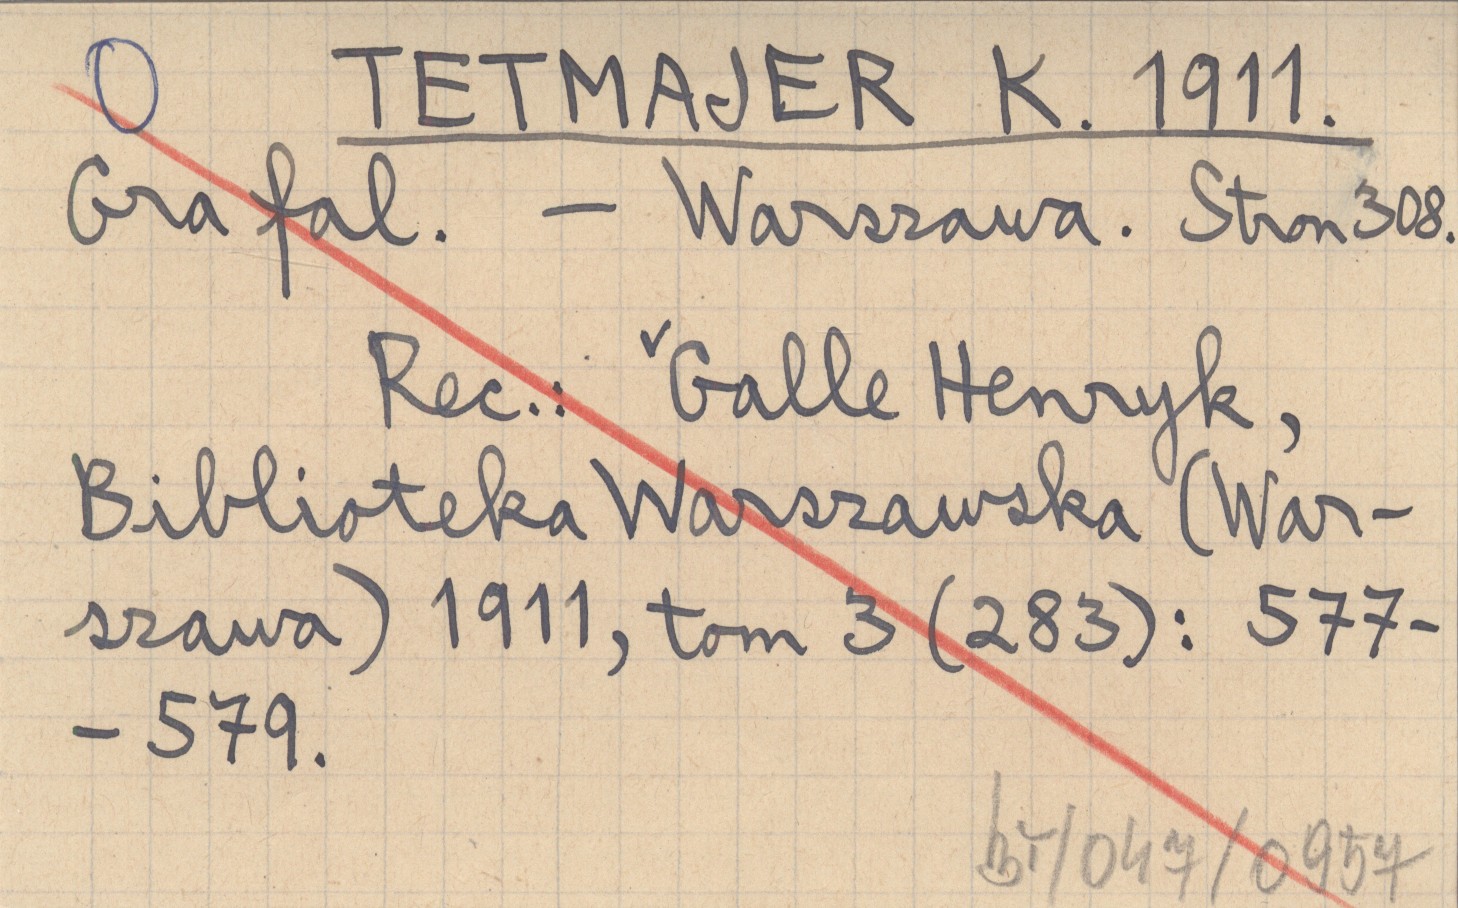 O TETMAJER K. 1911.
Gra fal. – Warszawa. Stron 308.
Rec.: ᵛGalle Henryk,
Biblioteka Warszawska (War-
szawa) 1911, tom 3 (283): 577-
- 579.
/047/0957